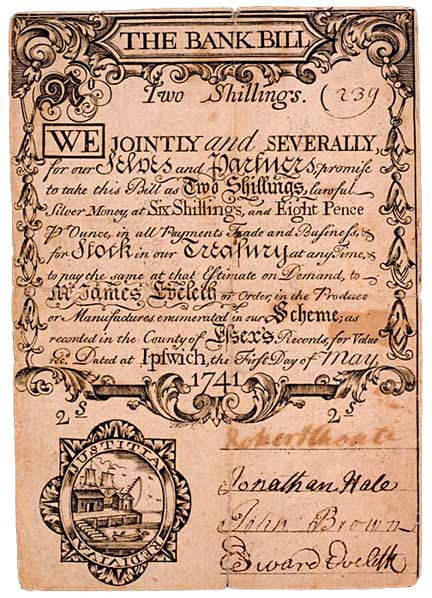 THE BANK BILL
No Two Shillings. (239)
WE JOINTLY and SEVERALLY,
for our Selves and Partners, promise
to take this Bill as Two Shillings, lawful
Silver Money, at Six Shillings, and Eight Pence
Pr Ounce, in all Payments Trade and Business, &
for Stock in our Treasury at any Time, &
to pay the same at that Estimate on Demand, to
Mr James Eveleth or Order, in the Produce
or Manufactures enumerated in our Scheme; as
recorded in the County of Essex's, Records, for Value
rec. Dated at Ipswich, the First Day of May,
1741
2s 2s
Robert Choate
Jonathan Hale
John Brown
Edward Eveleth
JUSTITIA REDIVIVA